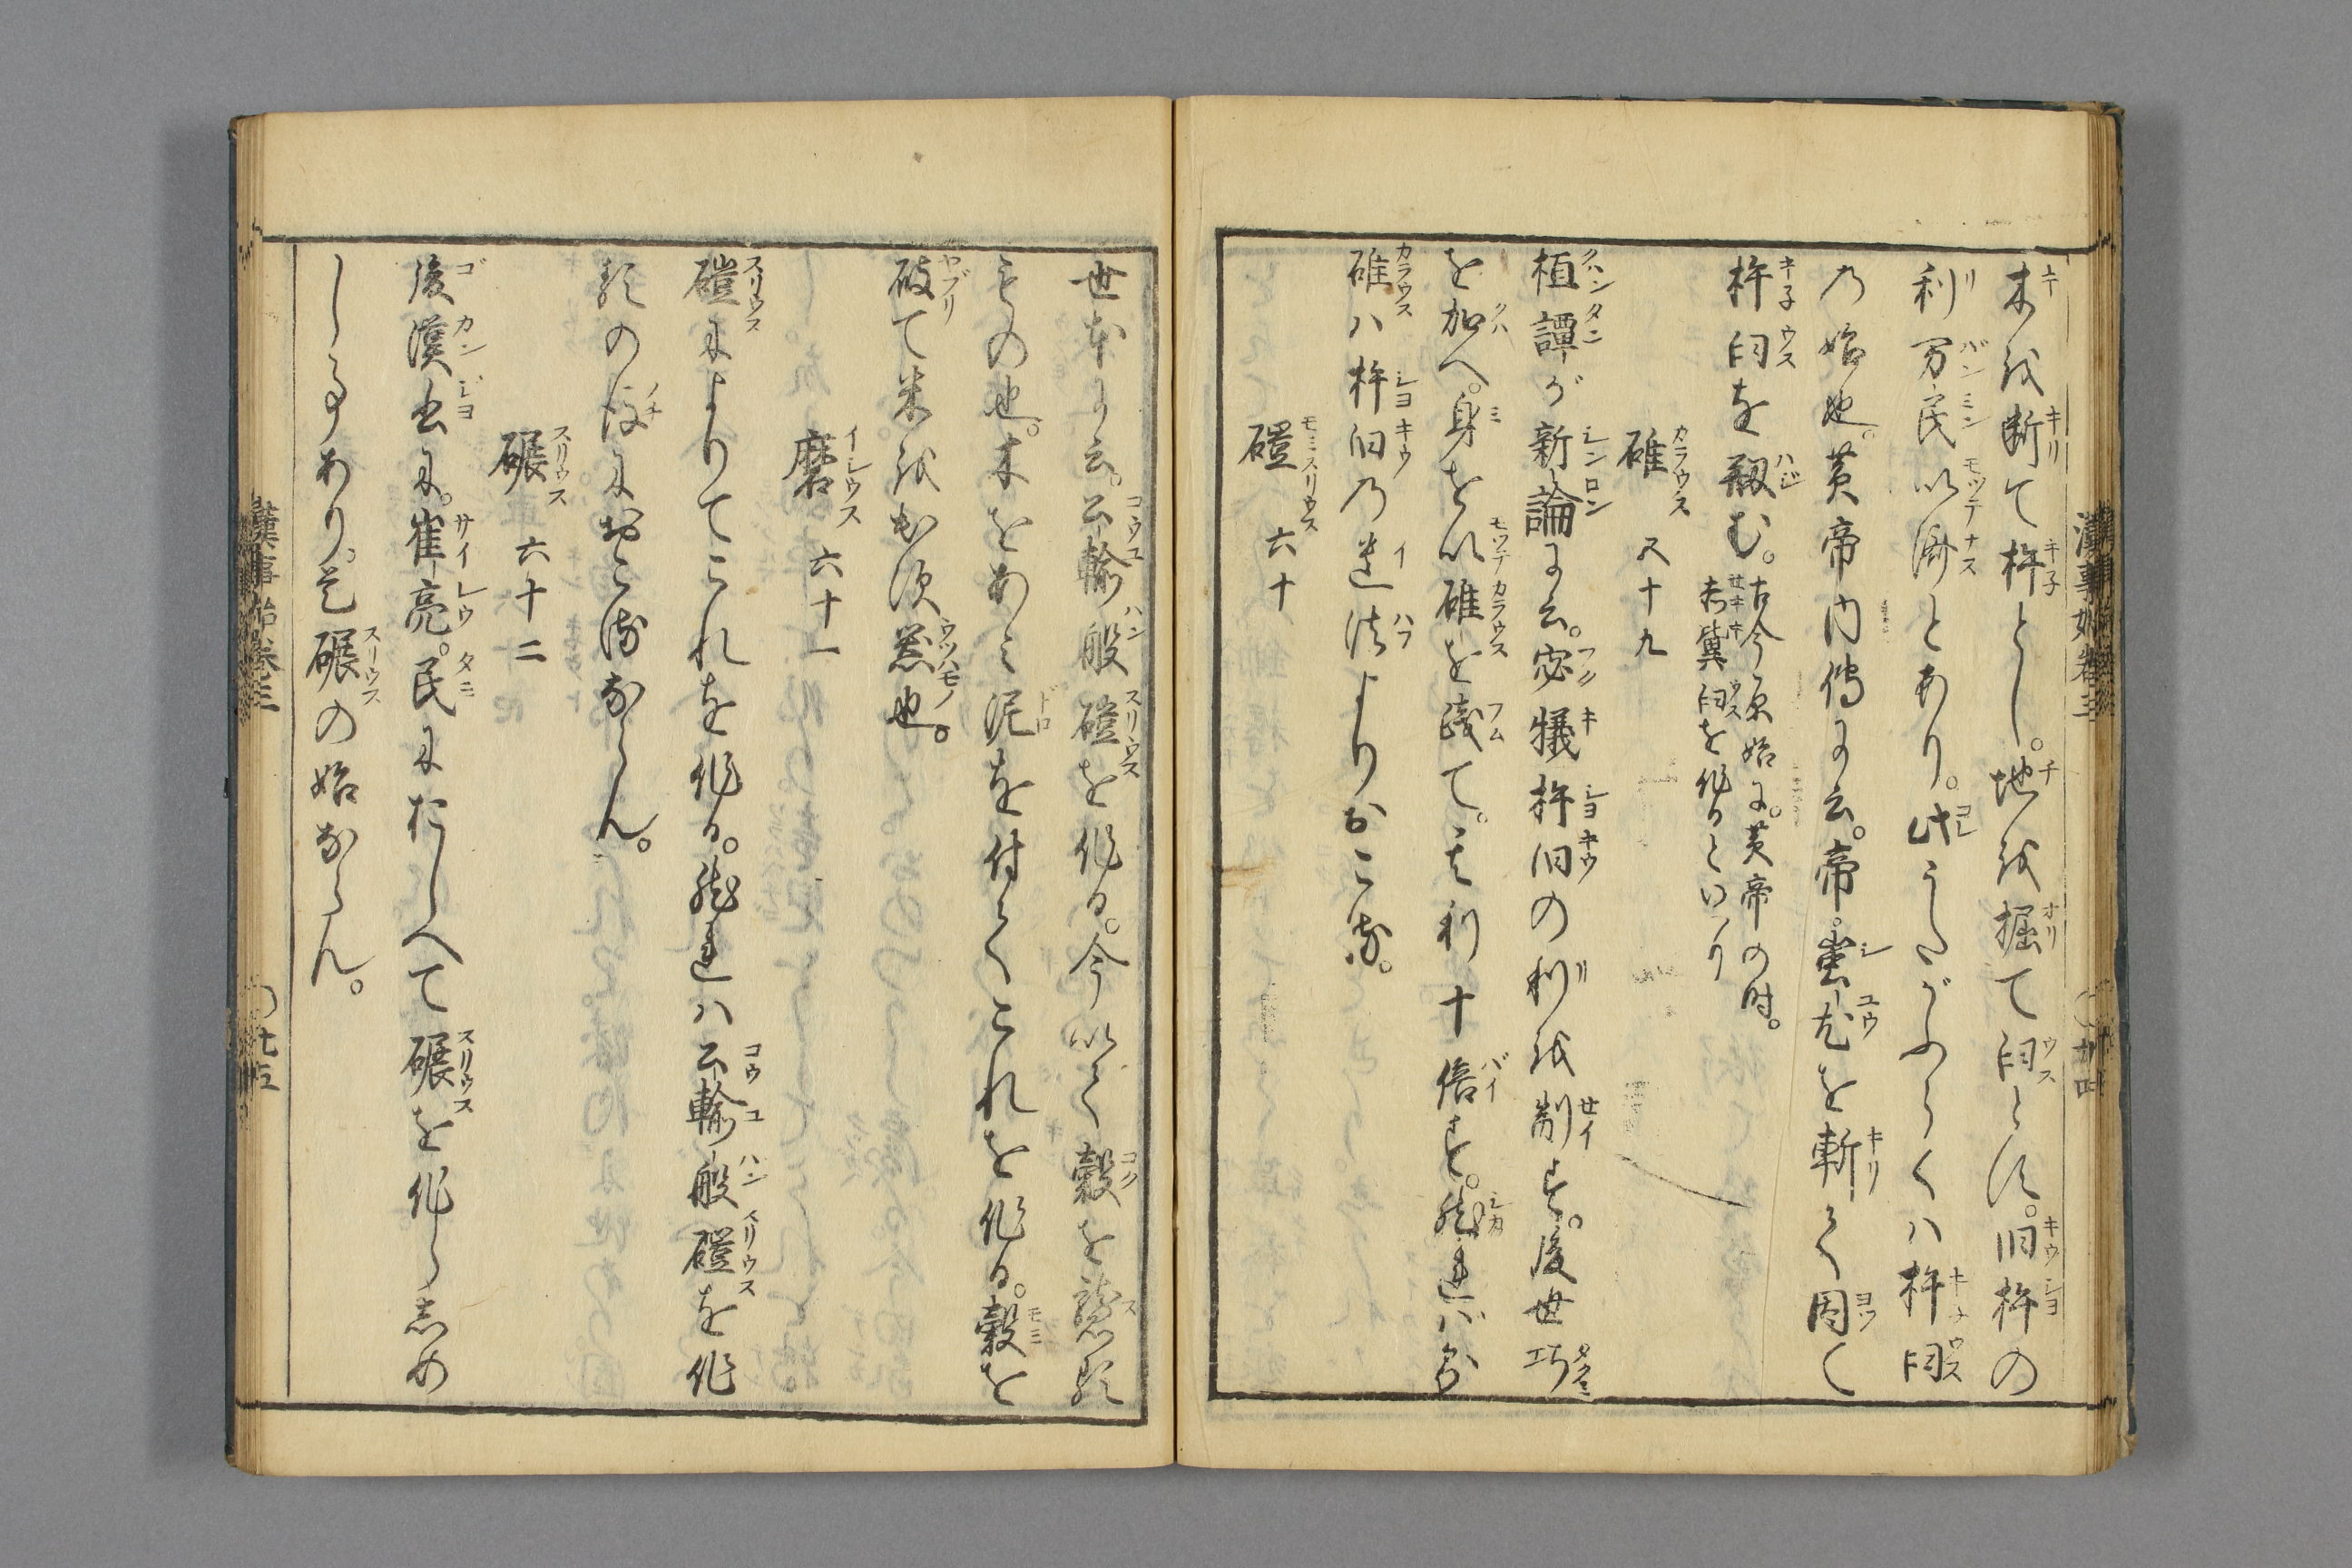 木を断て杵とし。地を掘て臼とす。臼杵の
利万民以済とあり。此うたがふらくハ杵臼
の始也。黄帝内傳に云。帝蚩尤を斬て因て
杵臼を剏む。古今原始に。黄帝の時。
赤冀臼を作るといへり
碓 五十九
桓譚が新論に云。宓犠杵臼の利を制す。後世巧
を加へ。身を以碓を踐て。其利十倍す。然れバ則
碓ハ杵臼の遺法よりおこる。
磑 六十
漢事始巻三 〇廿四
世本に云。公輸般磑を作る。今以て穀を
もの也。木をあミ泥を付てこれを作る。穀を
破て米を出須器也。
磨 六十一
磑によりてこれを作る。然れハ公輸般磑を作
るの後におこるならん。
碾 六十二
後漢書に。崔亮。民におしへて碾を作らしめ
し事あり。是碾の始ならん。
漢事始巻三 〇廿五